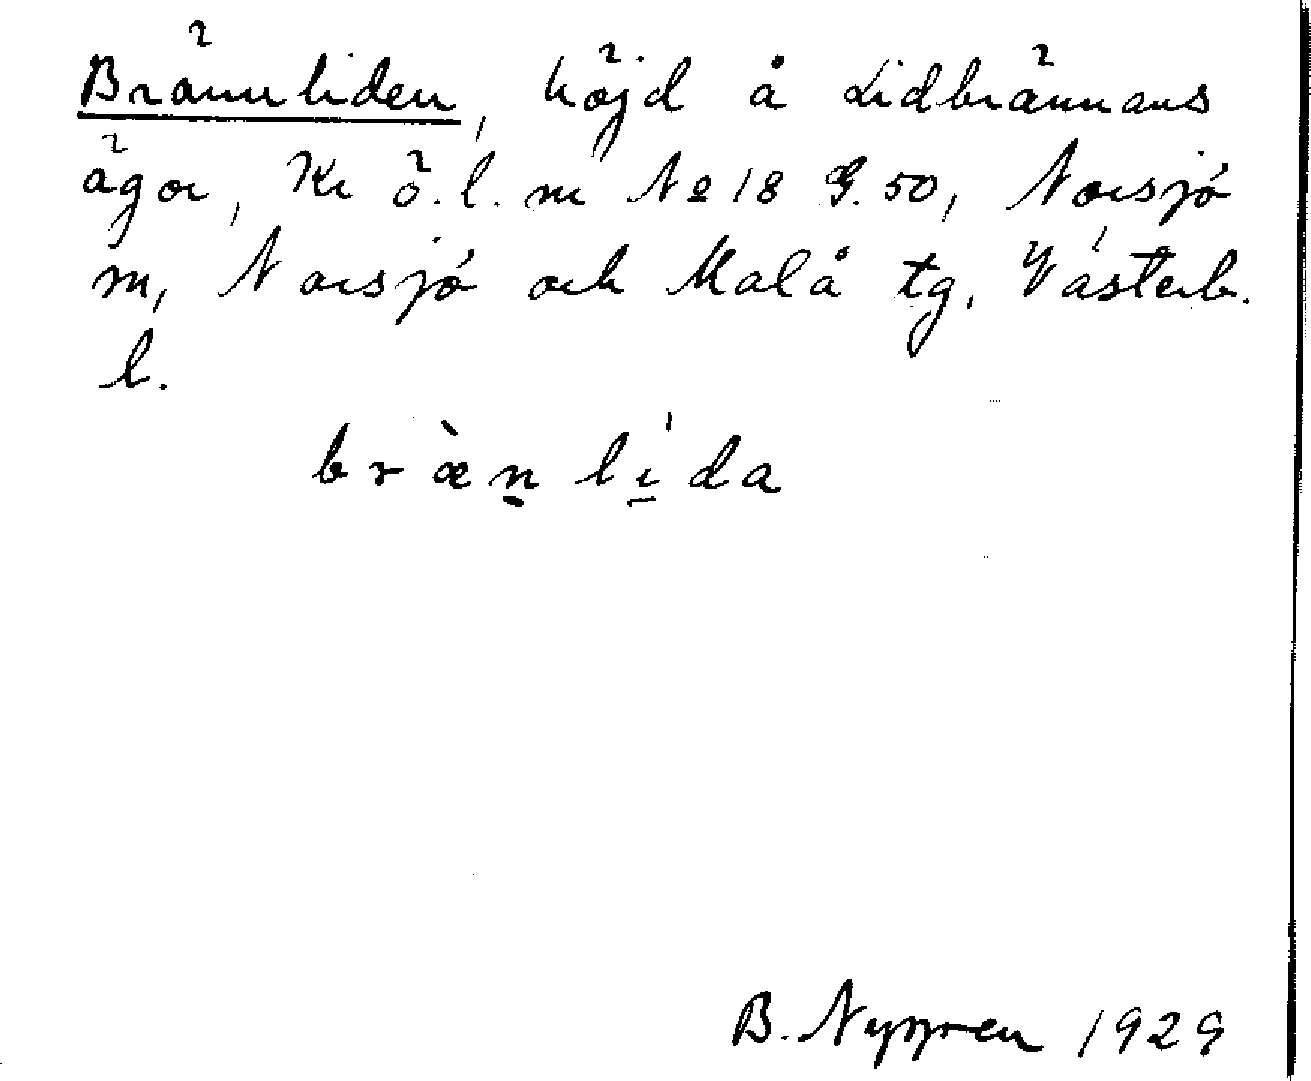 Brännliden, höjd å Lidbrännans
ägor, Kr ö.l. m № 18 G.50, Norsjö
m, Norsjö och Malå tg, Västerb.
l.
bræ̀n̲ lí̲da
B. Nygren 1929